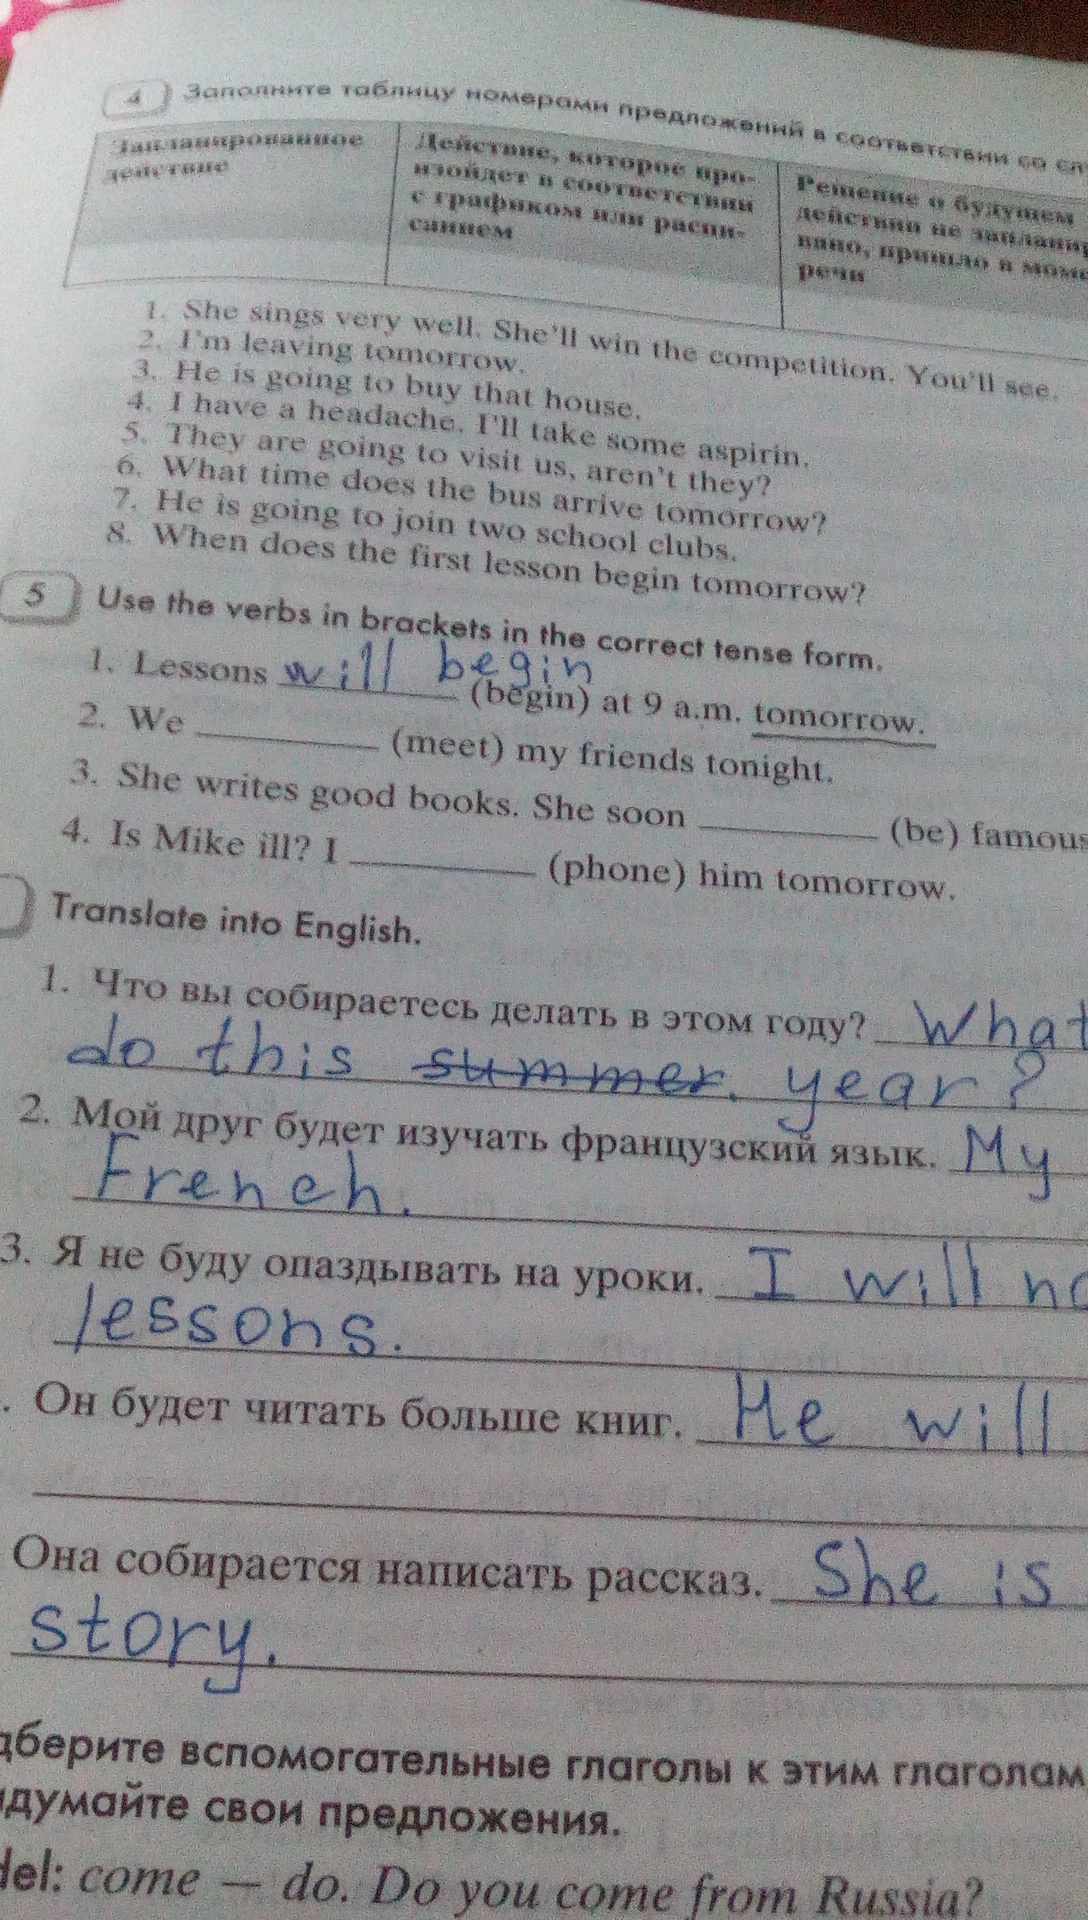 4 Заполните таблицу номерами предложений в соответствии со сл
Запланированное
действие
Действие, которое про-
изойдет в соответствии
с графиком или распи-
санием
Решение о будущем
действии не заплани
вано, пришло в моме
речи
1. She sings very well. She'll win the competition. You'll see.
2. I'm leaving tomorrow.
3. He is going to buy that house.
4. I have a headache. I'll take some aspirin.
5. They are going to visit us, aren't they?
6. What time does the bus arrive tomorrow?
7. He is going to join two school clubs.
8. When does the first lesson begin tomorrow?
5 Use the verbs in brackets in the correct tense form.
1. Lessons will begin (begin) at 9 a.m. tomorrow.
2. We ________ (meet) my friends tonight.
3. She writes good books. She soon ________ (be) famous
4. Is Mike ill? I ________ (phone) him tomorrow.
Translate into English.
1. Что вы собираетесь делать в этом году? What
do this summer. year?
2. Мой друг будет изучать французский язык. My
French.
3. Я не буду опаздывать на уроки. I will no
lessons.
. Он будет читать больше книг. He will
Она собирается написать рассказ. She is
story.
дберите вспомогательные глаголы к этим глаголам
идумайте свои предложения.
del: come — do. Do you come from Russia?